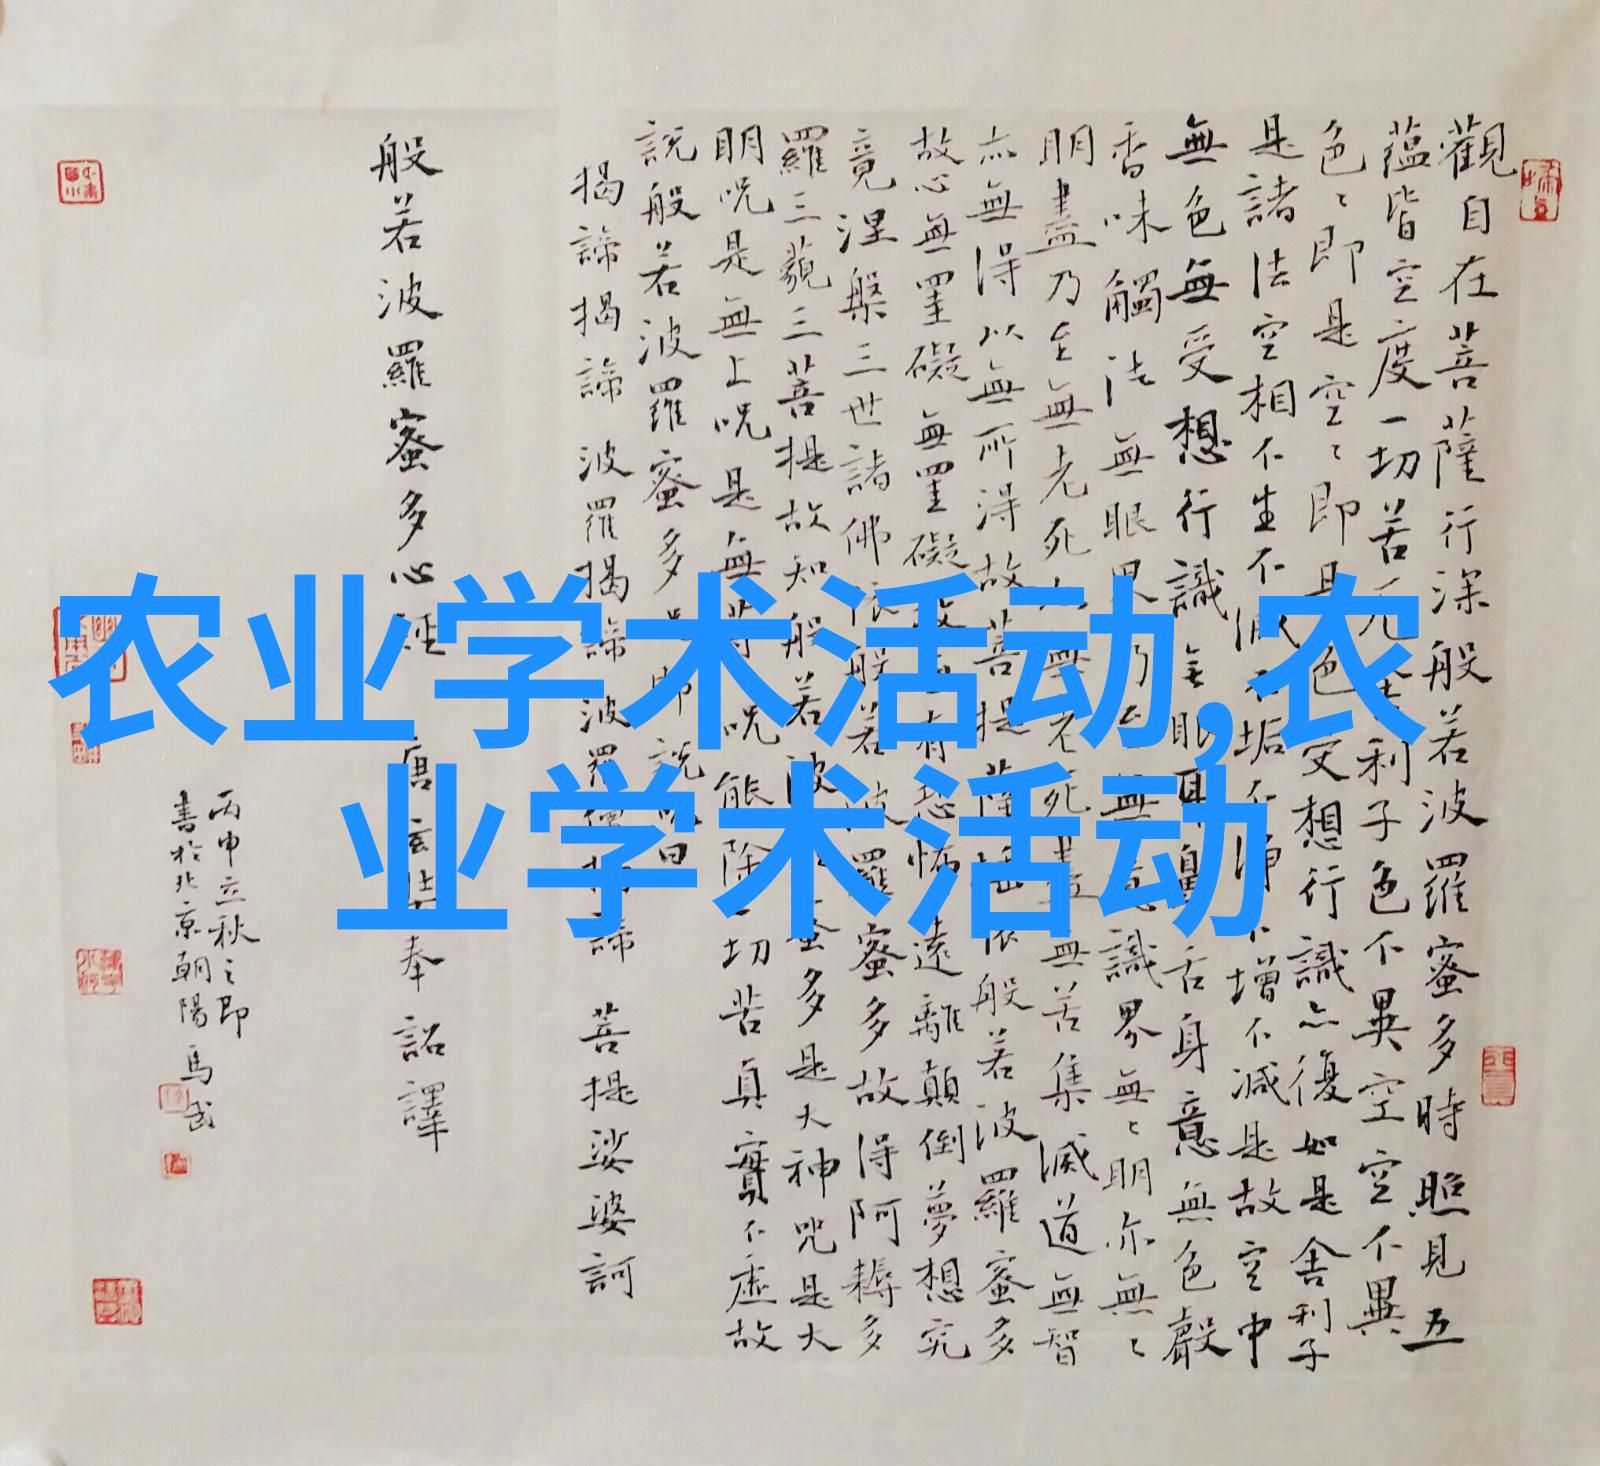 觀自在菩薩行深般若波羅蜜多時照見五
蘊皆空度一切苦厄舍利子色不異空空不異
色〻即是空〻即是色受想行識亦復如是舍利子
是諸法空相不生不滅不垢不淨不增不減是故空中
無色無受想行識無眼耳鼻舌身意無色聲
香味觸法無眼界乃至無意識界無〻明亦無〻
明盡乃至無老死亦無老死盡無苦集滅道無智
亦無得以無所得故菩提薩埵依般若波羅蜜多
故心無罣礙無罣礙故無有恐怖遠離顛倒夢想究
竟涅槃三世諸佛依般若波羅蜜多故得阿耨多
羅三藐三菩提故知般若波羅蜜多是大神咒是大
明呪是無上呪是無等呪能除一切苦真實不虛故
說般若波羅蜜多呪即說呪曰
揭諦揭諦 波羅揭諦 波羅僧揭諦 菩提娑婆訶
般若波羅蜜多心經 唐玄奘奉詔譯
丙申立秋之即
書於北京朝陽 馬武
农业学术活动,农
业学术活动